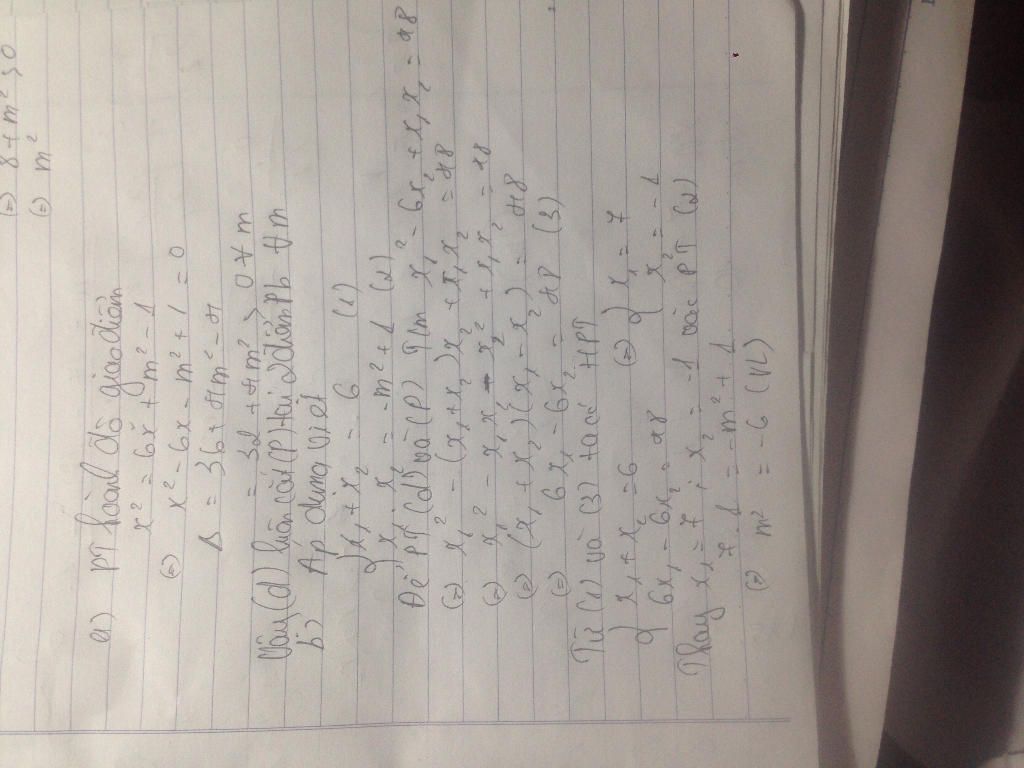 (=) 8 + m² > 0
(=) m²
a) PT hoành độ giao điểm
x² = 6x + m² - 1
(=) x² - 6x - m² + 1 = 0
Δ = 36 + 4m² - 4
= 32 + 4m² > 0 ∀ m
Vậy (d) luôn cắt (P) tại 2 điểm pb ∀ m
b) Áp dụng Viet
{ x₁ + x₂ = 6 (1)
{ x₁ . x₂ = -m² + 1 (2)
Để PT (d) và (P) Tm x₁² - 6x₂ + x₁x₂ = 48
(=) x₁² - (x₁ + x₂)x₂ + x₁x₂ = 48
(=) x₁² - x₁x₂ - x₂² + x₁x₂ = 48
(=) (x₁ + x₂)(x₁ - x₂) = 48
(=) 6x₁ - 6x₂ = 48 (3)
Từ (1) và (3) ta có HPT
{ x₁ + x₂ = 6
{ 6x₁ - 6x₂ = 48 (=) { x₁ = 7
{ x₂ = -1
Thay x₁ = 7 ; x₂ = -1 vào PT (2)
7 . 1 = -m² + 1
(=) m² = -6 (VL)